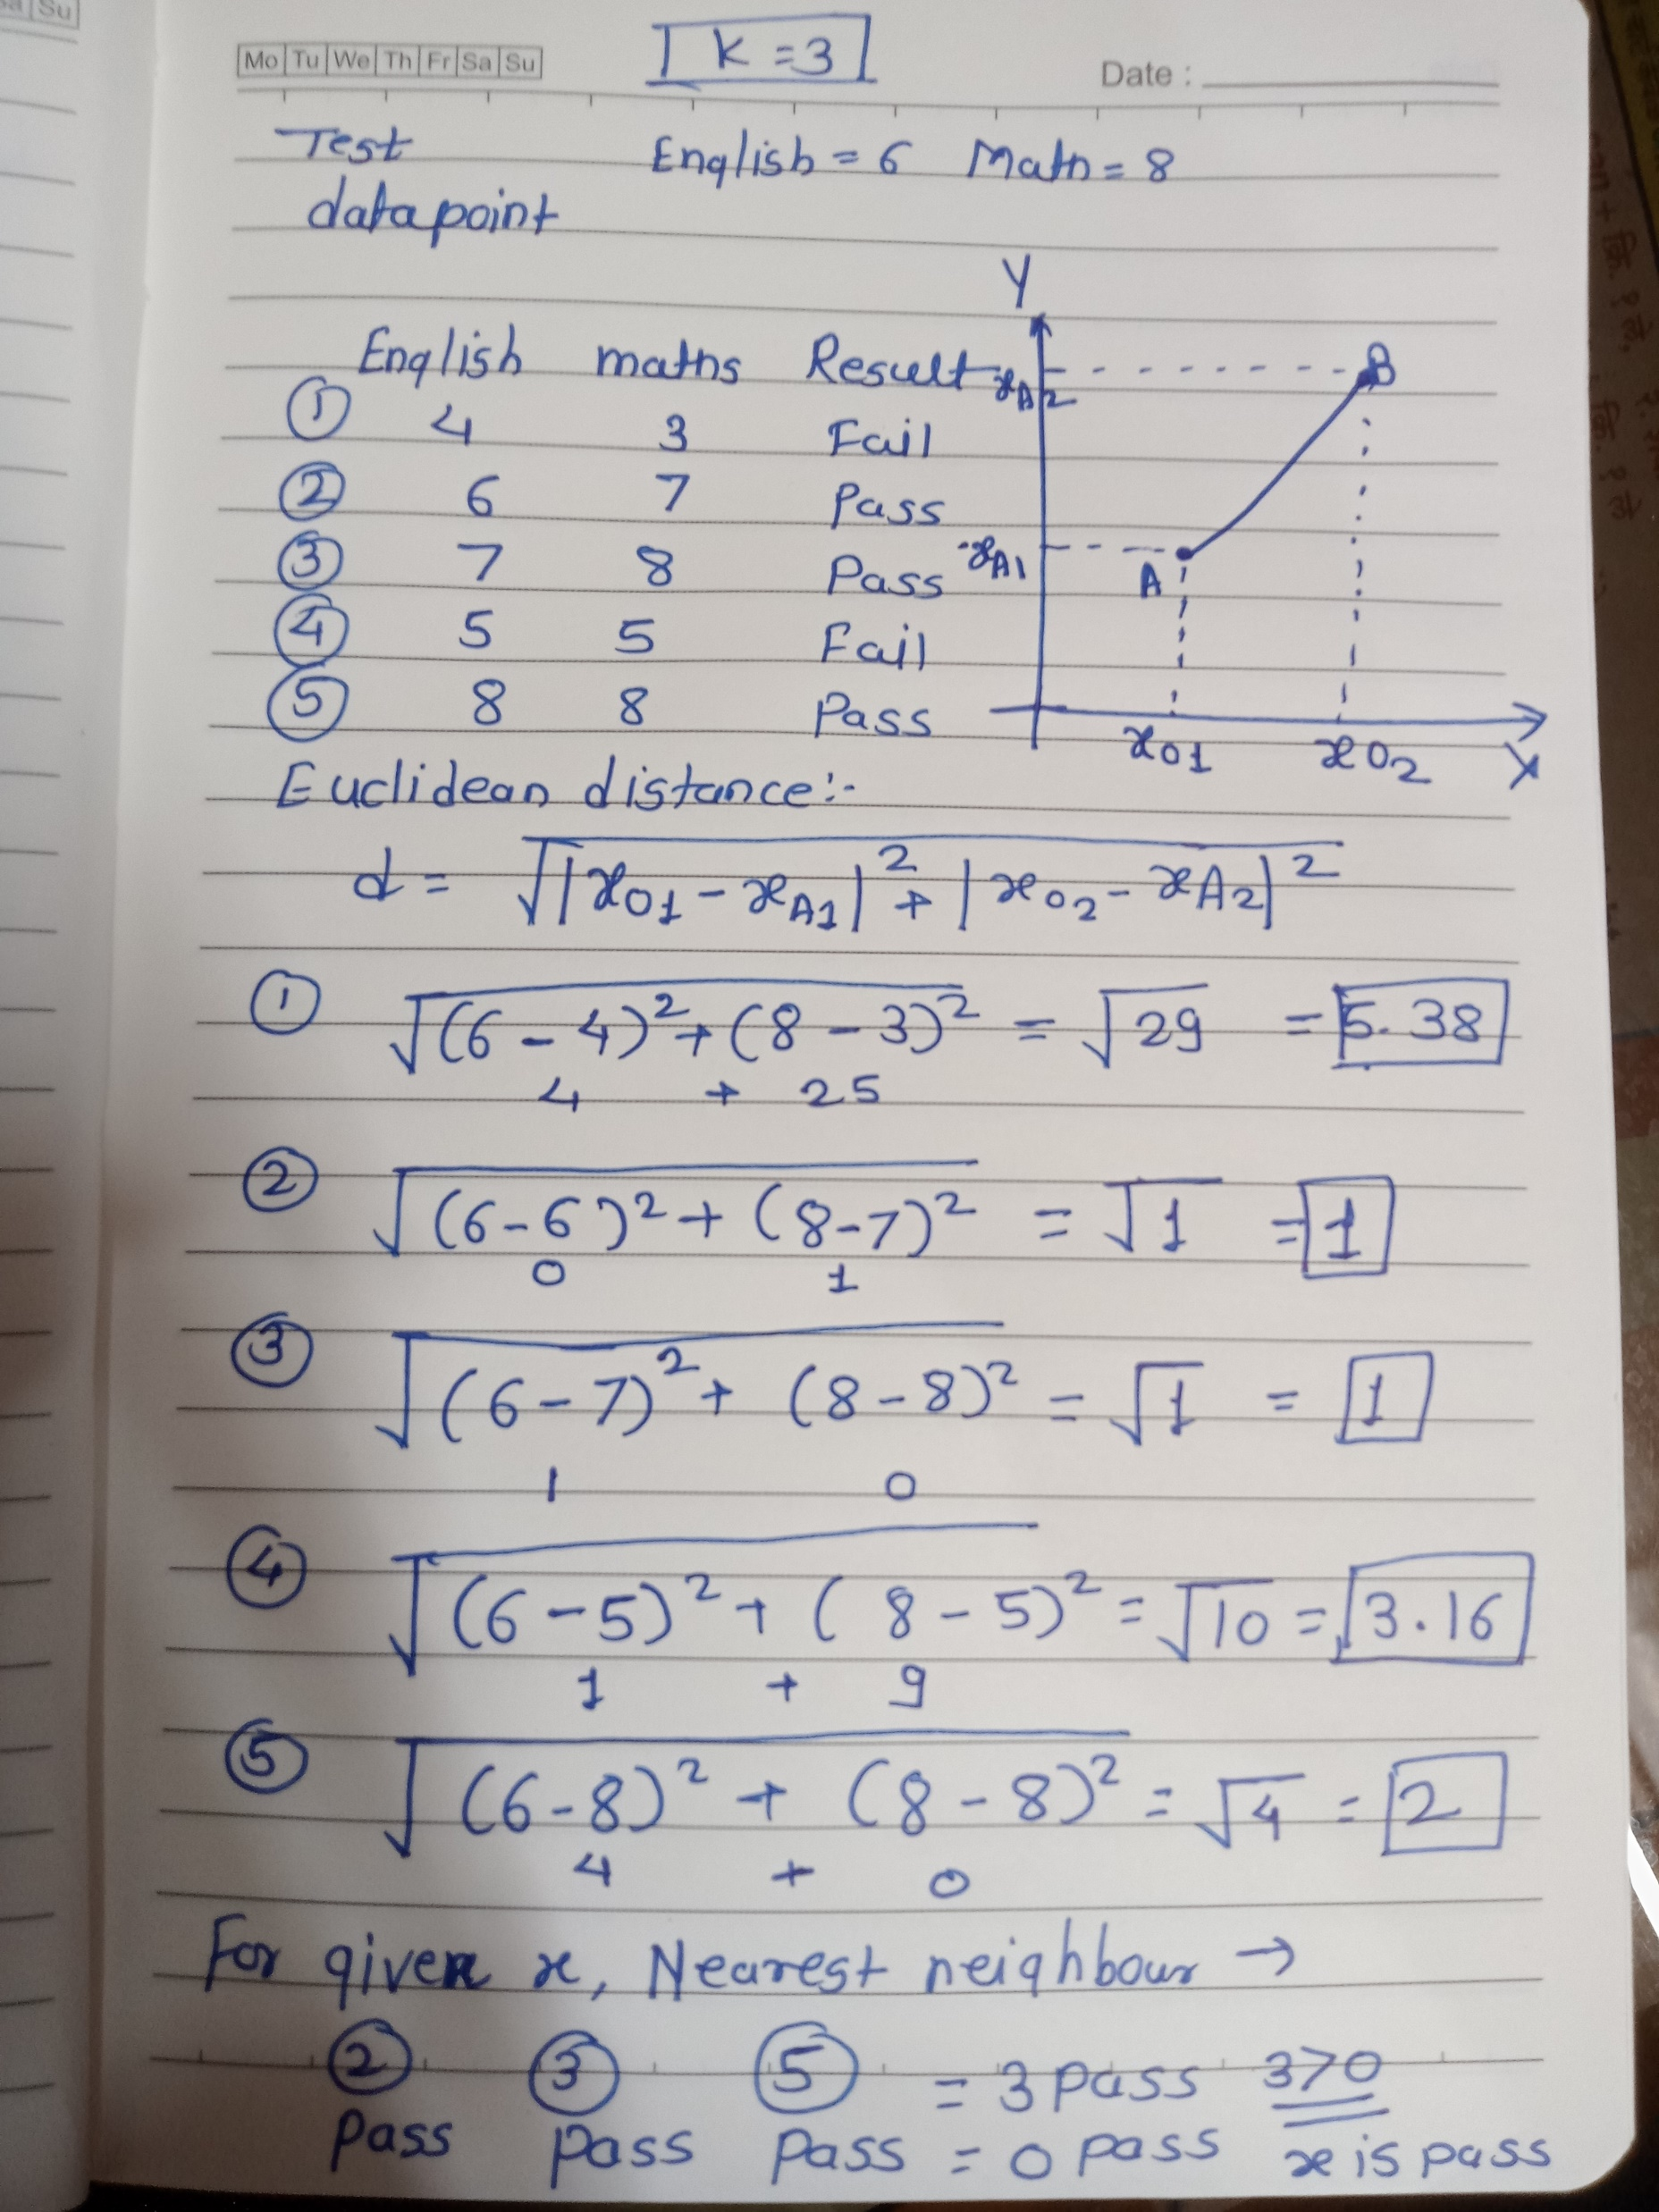 Sa Su
Mo Tu We Th Fr Sa Su
K = 3
Date :
Test English = 6 Math = 8
datapoint
Y
English maths Result
① 4 3 Fail
② 6 7 Pass
③ 7 8 Pass
④ 5 5 Fail
⑤ 8 8 Pass
xA2
B
xA1
A
xO1 xO2 X
Euclidean distance:-
d = √|xO1 - xA1|² + |xO2 - xA2|²
① √(6 - 4)² + (8 - 3)² = √29 = 5.38
4 + 25
② √(6-6)² + (8-7)² = √1 = 1
0 1
③ √(6-7)² + (8-8)² = √1 = 1
1 0
④ √(6-5)² + (8-5)² = √10 = 3.16
1 + 9
⑤ √(6-8)² + (8-8)² = √4 = 2
4 + 0
For given x, Nearest neighbour →
② ③ ⑤ = 3 pass 3>0
Pass Pass Pass = 0 pass x is pass